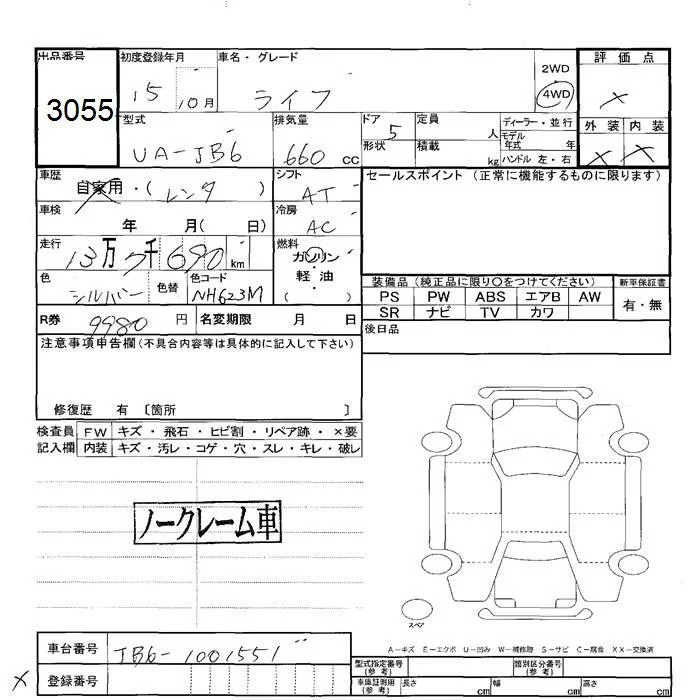 出品番号 初度登録年月 車名・グレード 評価点
3055 15 10月 ライフ 2WD 4WD ×
型式 排気量 ドア 定員 ディーラー・並行 外装 内装
UA-JB6 660cc 5 人 モデル年式 年 × ×
形状 積載 kg ハンドル 左・右
車歴 シフト セールスポイント(正常に機能するものに限ります)
自家用・(レンタ) AT
車検 冷房
年 月(日) AC
走行 燃料
13万7千690km ガソリン
軽・油
色 色替 色コード 装備品(純正品に限り○をつけてください) 新車保証書
シルバー NH623M PS PW ABS エアB AW 有・無
SR ナビ TV カワ
R券 9980円 名変期限 月 日 後日品
注意事項申告欄(不具合内容等は具体的に記入して下さい)
修復歴 有 〔箇所 〕
検査員 FW キズ・飛石・ヒビ割・リペア跡・×要
記入欄 内装 キズ・汚レ・コゲ・穴・スレ・キレ・破レ
ノークレーム車
スペア
A-キズ E-エクボ U-凹み W-補修跡 S-サビ C-腐食 XX-交換済
車台番号 JB6-1001551 型式指定番号(参考) 類別区分番号(参考)
× 登録番号 車庫証明用(参考) 長さ cm 幅 cm 高さ cm